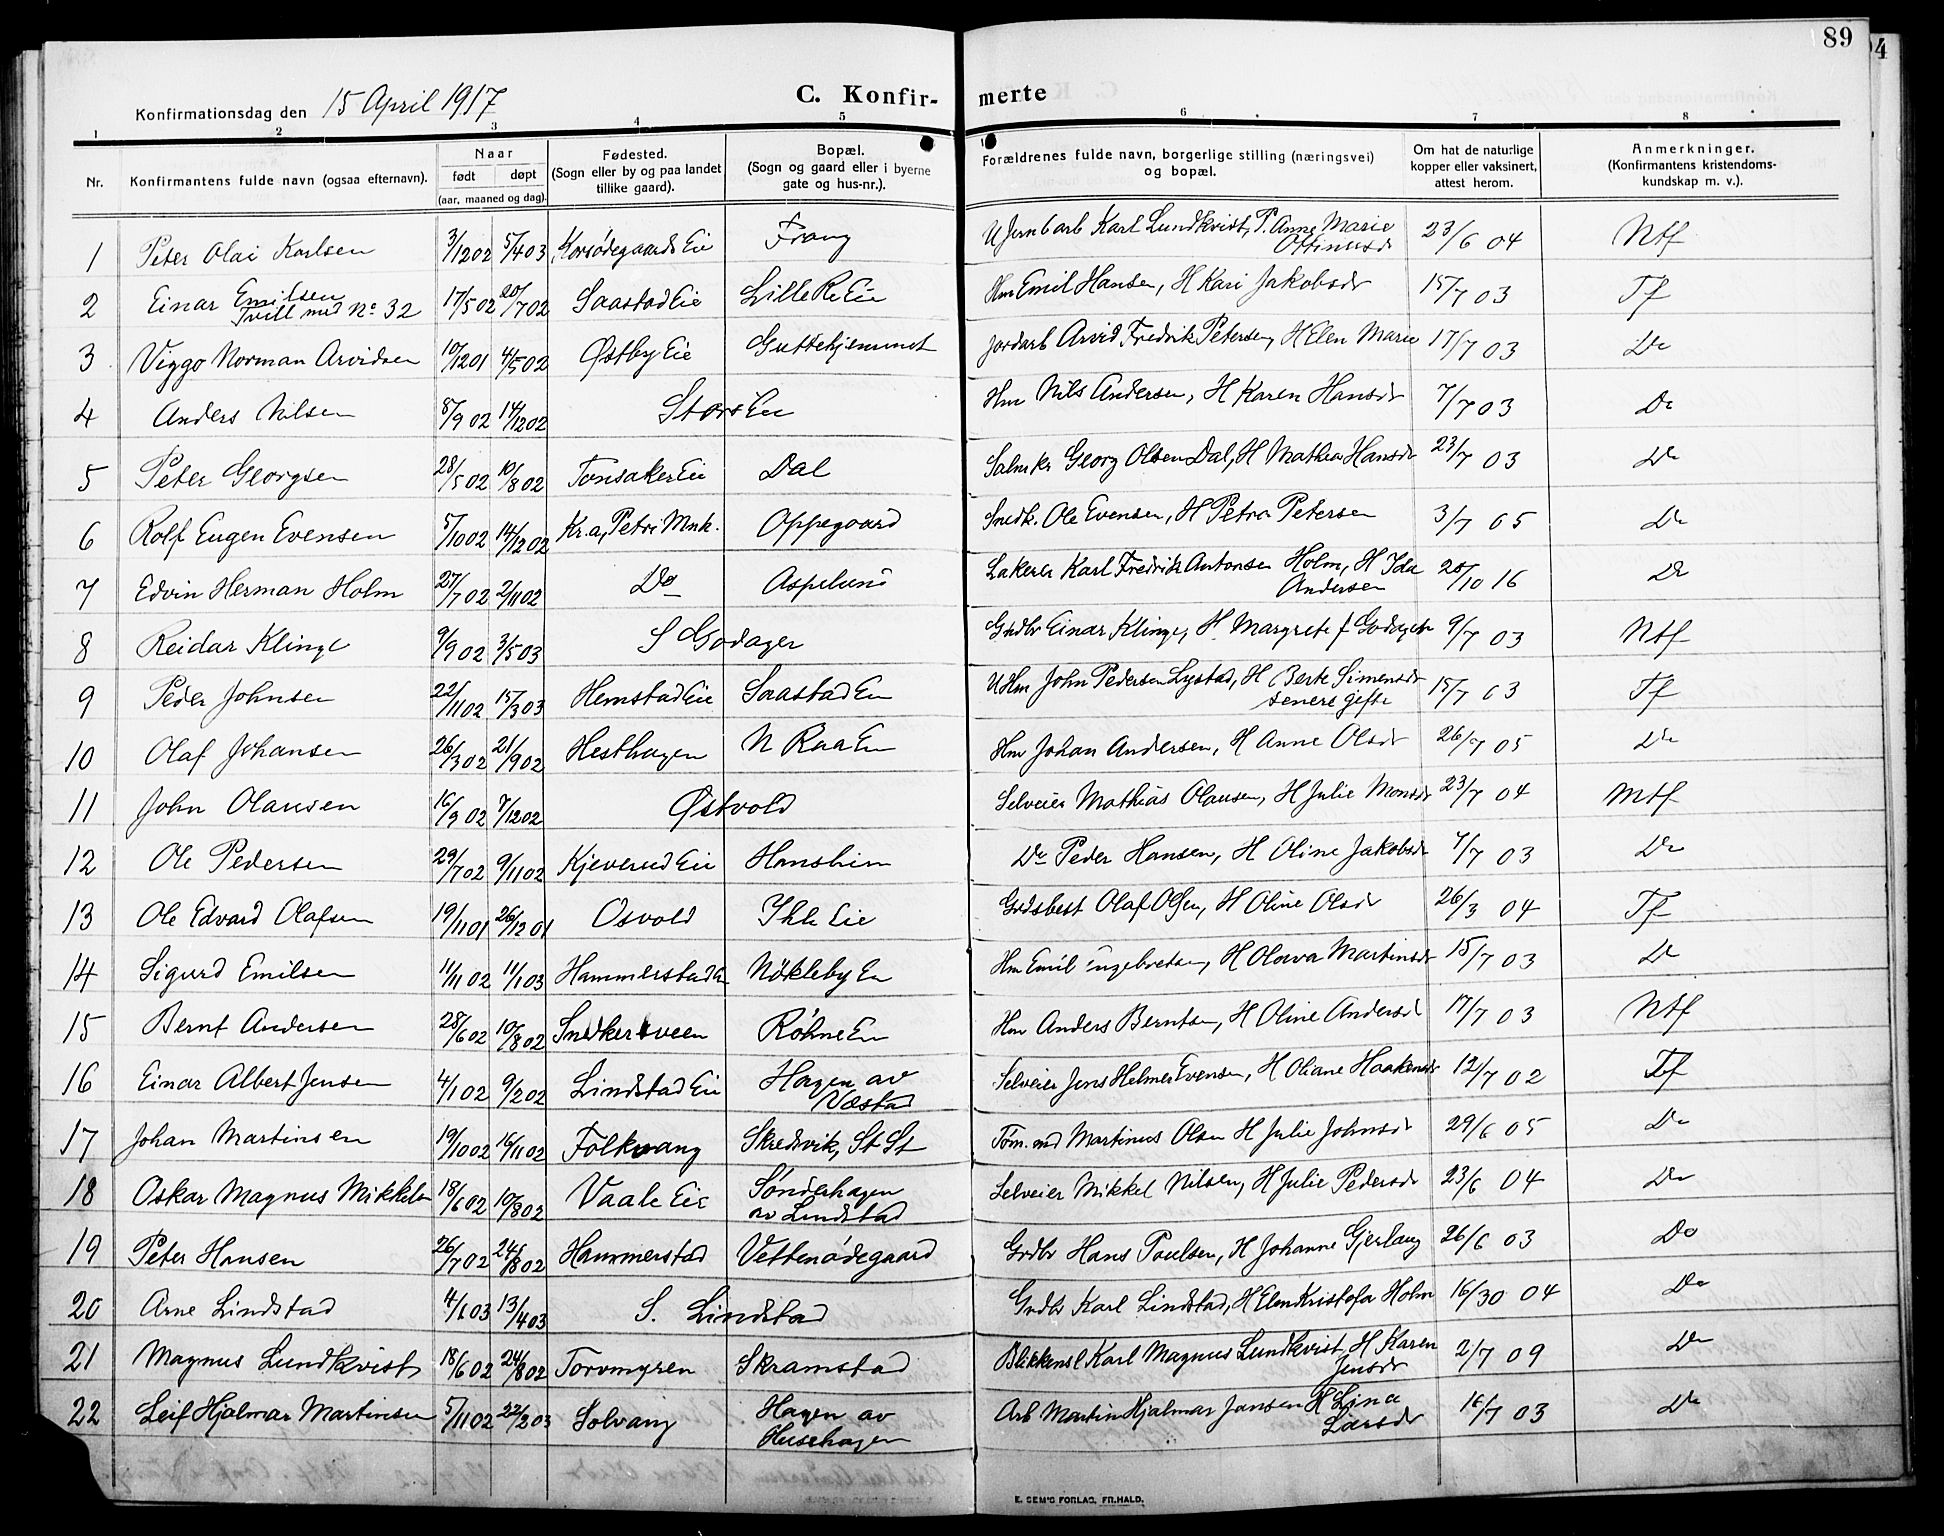 89
Konfirmationsdag den 15 April 1917
C. Konfir- merte
1 2 3 4 5 6 7 8
Nr. Konfirmantens fulde navn (ogsaa efternavn). Naar født døpt (aar, maaned og dag). Fødested. (Sogn eller by og paa landet tillike gaard). Bopæl. (Sogn og gaard eller i byerne gate og hus-nr.). Forældrenes fulde navn, borgerlige stilling (næringsvei) og bopæl. Om hat de naturlige kopper eller vaksinert, attest herom. Anmerkninger. (Konfirmantens kristendoms-kundskap m. v.).
1 Peter Olai Karlsen 3/12 02 5/4 03 Korsødegaards Eie Frang U Jernbarb Karl Lundkvist, P. Anne Marie 23/6 04 Ntf
Ottinusdr
2 Einar Emilsen 17/5 02 20/7 02 Saastad Eie Lille Re Eie Hm Emil Hansen, H Kari Jakobsdr 15/7 03 Tf
Tvill med No 32
3 Viggo Norman Arvidsen 10/12 01 4/5 02 Østby Eie Guttehjemmet Jordarb Arvid Fredrik Petersen, H Elen Marie 17/7 03 Do
4 Anders Nilsen 8/9 02 14/12 02 Stors Eie Hm Nils Andersen, H Karen Hansdr 7/7 03 Do
5 Peter Georgsen 28/5 02 10/8 02 Tonsaker Eie Dal Salmkr Georg Olsen Dal, H Mathea Hansdr 23/7 03 Do
6 Rolf Eugen Evensen 5/10 02 14/12 02 Kr.a, Petri Mnk. Oppegaard Snedk. Ole Evensen, H Petra Petersen 3/7 05 Do
7 Edvin Herman Holm 27/7 02 2/11 02 Do Aspelund Lakerer Karl Fredrik Antonsen Holm, H Ida 20/10 16 Do
Andersen
8 Reidar Klinge 9/9 02 3/5 03 S Godager Grdbr Einar Klinge, H. Margrete f Godager 9/7 03 Ntf
9 Peder Johnsen 22/11 02 15/3 03 Hemstad Eie Saastad En U Hm John Pedersen Lystad, H Berte Simensdr 15/7 03 Tf
senere gifte
10 Olaf Johansen 26/3 02 21/9 02 Hesthagen N Raa En Hm Johan Andersen, H Anne Olsdr 26/7 05 Do
11 John Olausen 16/9 02 7/12 02 Østvold Selveier Mathias Olausen, H Julie Monsdr 23/7 04 Mtf
12 Ole Pedersen 29/7 02 9/11 02 Kjeverud Eie Hansheim Do Peder Hansen, H Oline Jakobsdr 7/7 03 Do
13 Ole Edvard Olafsen 19/11 01 26/12 01 Osvold Ihle Eie Grdsbest Olaf Olsen, H Oline Olsdr 26/3 04 Tf
14 Sigurd Emilsen 11/11 02 11/1 03 Hammerstad En Nökleby En Hm Emil Engebretsen, H Olava Martinsdr 15/7 03 Do
15 Bernt Andersen 28/6 02 10/8 02 Snedkersveen Röhne En Hm Anders Berntsen, H Oline Andersdr 17/7 03 Ntf
16 Einar Albert Jensen 4/1 02 9/2 02 Lindstad Eie Hagen av Selveier Jens Helmer Evensen, H Oliane Haakensdr 12/7 02 Tf
Væstad
17 Johan Martinsen 19/10 02 16/11 02 Folkvang Skredvik, St St Töm.md Martinus Olsen H Julie Johnsdr 29/6 05 Do
18 Oskar Magnus Mikkelsen 18/6 02 10/8 02 Vaale Eie Söndrehagen Selveier Mikkel Nilsen, H Julie Pedersdr 23/6 04 Do
av Lindstad
19 Peter Hansen 26/7 02 24/8 02 Hammerstad Vettenødegaard Grdbr Hans Poulsen, H Johanne Gjerlaug 26/6 03 Do
20 Arne Lindstad 4/1 03 13/4 03 S. Lindstad Grdbr Karl Lindstad, H Elen Kristofa Holm 16/30 04 Do
21 Magnus Lundkvist 18/6 02 24/8 02 Torvmyren Skramstad Blikkensl Karl Magnus Lundkvist, H Karen 2/7 09 Do
Jensdr
22 Leif Hjalmar Martinsen 5/11 02 22/2 03 Solvang Hagen av Arb Martin Hjalmar Jansen H Lina 16/7 03 Do
Husehagen Larsdr
E. SEM'S FORLAG, FR.HALD.